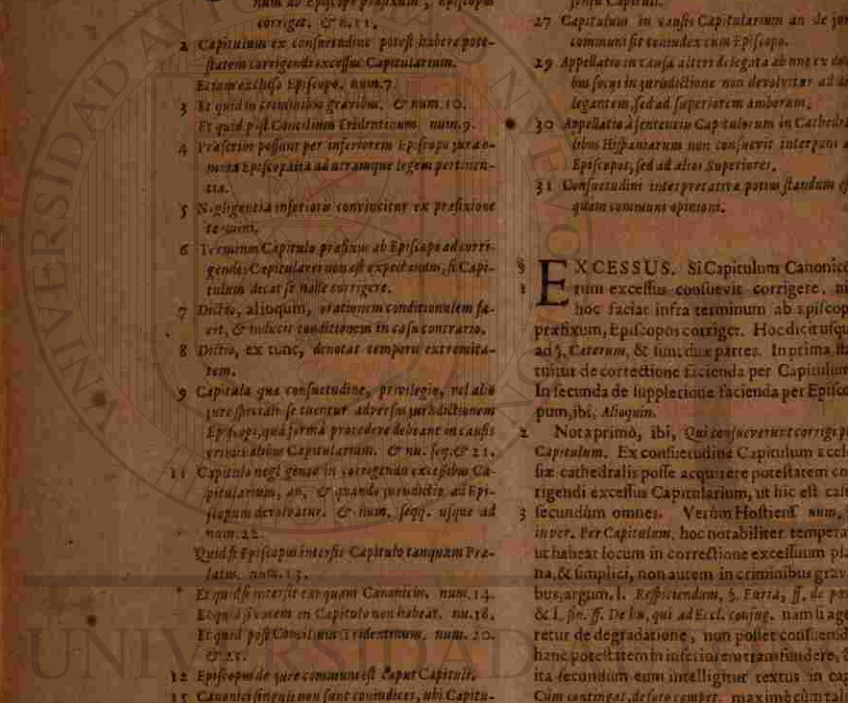 num ab Episcopo præfixum, Episcopus
corriget. & n. 11.
2 Capitulum ex consuetudine potest habere pote-
statem corrigendi excessus Capitularium.
Etiam excluso Episcopo. num. 7.
3 Et quid in criminibus gravibus. & num. 10.
Et quid post Concilium Tridentinum. num. 9.
4 Præscribi possunt per inferiorem Episcopo jura o-
mnia Episcopalia ad utramque legem pertinen-
tia.
5 Negligentia inferioris convincitur ex præfixione
termini.
6 Terminus Capitulo præfixus ab Episcopo ad corri-
gendos Capitulares non est expectandus, si Capi-
tulum dicat se nolle corrigere.
7 Dictio, alioquin, orationem conditionalem fa-
cit, & inducit conditionem in casu contrario.
8 Dictio, ex tunc, denotat temporis extremita-
tem.
9 Capitula quæ consuetudine, privilegio, vel alio
jure speciali se tuentur adversus jurisdictionem
Episcopi, quâ formâ procedere debeant in causis
criminalibus Capitularium. & nu. seq. & 21.
11 Capitulo negligente in corrigendo excessibus Ca-
pitularium, an, & quando jurisdictio ad Epi-
scopum devolvatur. & num. seqq. usque ad
num. 22.
Quid si Episcopus intersit Capitulo tanquam Præ-
latus. num. 13.
Et quid si intersit tanquam Canonicus. num. 14.
Et quid si vocem in Capitulo non habeat. nu. 18.
Et quid post Concilium Tridentinum. num. 20.
& 21.
12 Episcopus de jure communi est Caput Capituli.
15 Canonici singuli non sunt conjudices, ubi Capitu-
27 Capitulum in causis Capitularium an de jure
communi sit conjudex cum Episcopo.
29 Appellatio in causa alteri delegata ab uno ex duo-
bus sociis in jurisdictione non devolvitur ad de-
legantem, sed ad superiorem amborum.
30 Appellatio à sententia Capitulorum in Cathedra-
libus Hispaniarum non consuevit interponi ad
Episcopos, sed ad alios Superiores.
31 Consuetudini interpretativæ potius standum est
quam communi opinioni.
§ EXCESSUS. Si Capitulum Canonico-
1 rum excessus consuevit corrigere, ni
hoc faciat infra terminum ab Episcop
præfixum, Episcopus corriget. Hoc dicit usqu
ad §. Cæterum, & sunt duæ partes. In prima sta
tuitur de correctione facienda per Capitulum
In secunda de suppletione facienda per Episco
pum, ibi, Alioquin.
2 Nota primò, ibi, Qui consueverunt corrigi p
Capitulum. Ex consuetudine Capitulum Eccle
siæ cathedralis posse acquirere potestatem co
rigendi excessus Capitularium, ut hic est casu
3 secundùm omnes. Verùm Hostiens. num.
in ver. Per Capitulum, hoc notabiliter tempera
ut habeat locum in correctione excessuum pla
na, & simplici, non autem in criminibus grav
bus, argum. l. Respiciendum, §. Furia, ff. de pœ
& l. fin. ff. De his, qui ad Eccl. confug. nam si age
retur de degradatione, non posset consuetud
hanc potestatem in inferiorem transfundere, &
ita secundùm eum intelligitur textus in cap
Cùm contingat, de foro compet. maximè cùm tali
UNIVERSIDAD